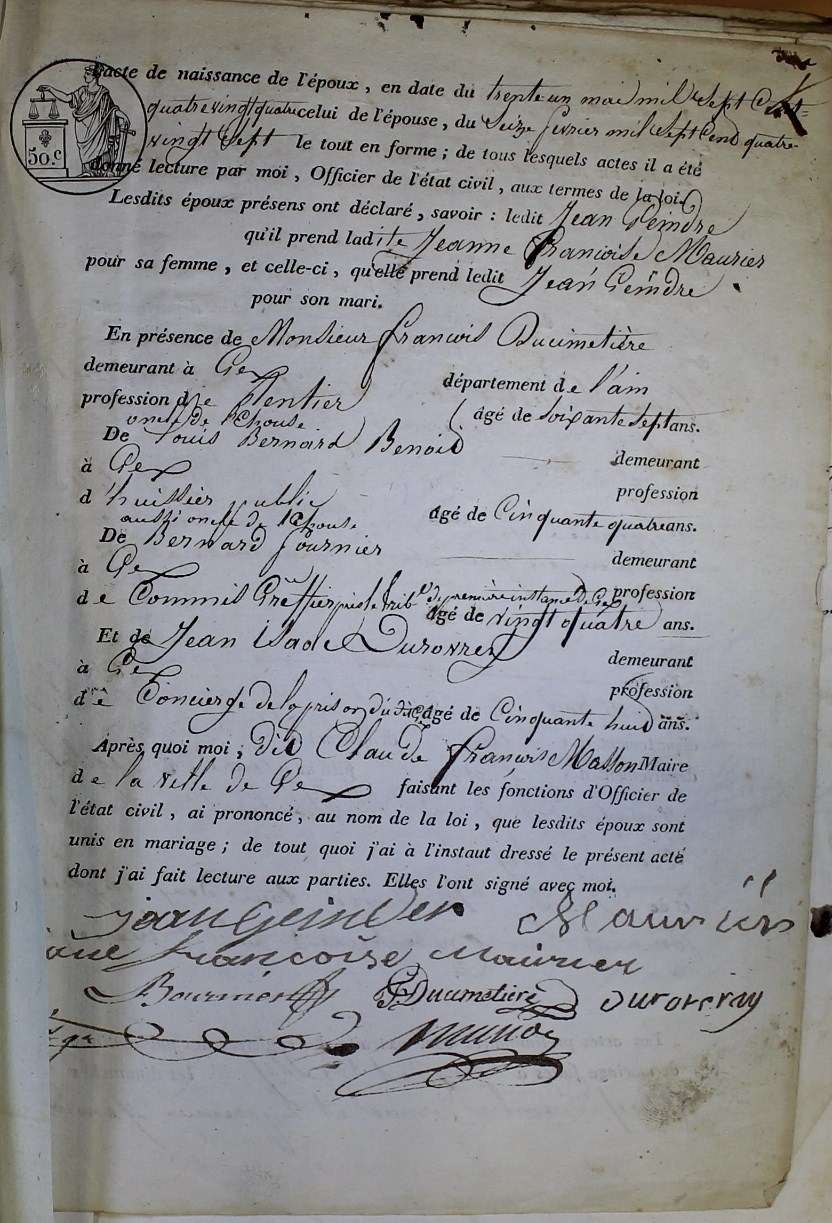 L'acte de naissance de l'époux, en date du trente un mai mil sept Cent
quatrevingt quatre celui de l'épouse, du seize fevrier mil sept Cend quatre-
vingt sept le tout en forme ; de tous lesquels actes il a été
donné lecture par moi, Officier de l'état civil, aux termes de la loi.
50.c
Lesdits époux présens ont déclaré, savoir : ledit Jean Geindre
qu'il prend ladite Jeanne francoise Maurier
pour sa femme, et celle-ci, qu'elle prend ledit Jean Geindre
pour son mari.
En présence de Monsieur francois Ducimetière
demeurant à Gex département de l'ain
profession de Rentier
oncle de l'Epouse âgé de soixante sept ans.
De Louis Bernard Benoid demeurant
à Gex profession
d'huissier public
aussi oncle de l'Epouse âgé de Cinquante quatre ans.
De Bernard fournier demeurant
à Gex profession
de Commis Greffier près le trib.l de première instance de Gex
âgé de vingt quatre ans.
Et de Jean isaac Durovrey demeurant
à Gex profession
de Concierge de la prison dudit Gex âgé de Cinquante huid ans.
Après quoi moi, dit Claude francois Masson Maire
de la ville de Gex faisant les fonctions d'Officier de
l'état civil, ai prononcé, au nom de la loi, que lesdits époux sont
unis en mariage ; de tout quoi j'ai à l'instaut dressé le présent acte
dont j'ai fait lecture aux parties. Elles l'ont signé avec moi.
jean Geindre Maurier
françoise maurier
F. Ducimetière Durovray